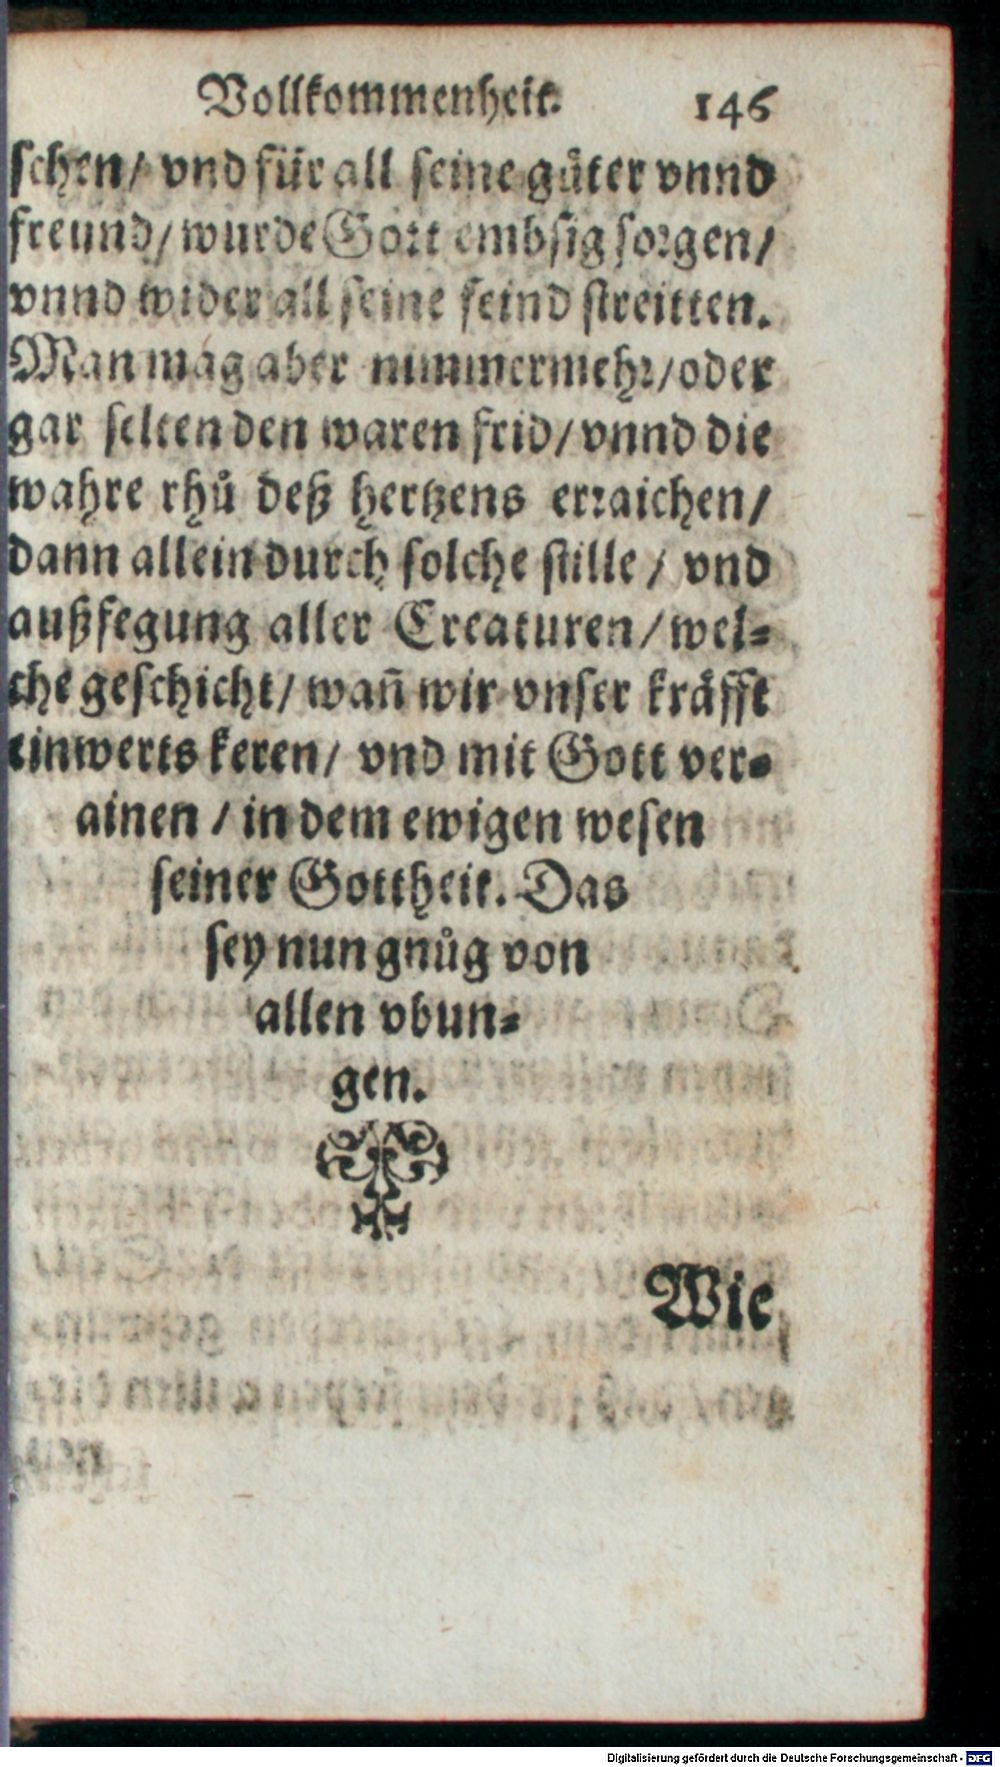 Vollkommenheit. 146
schen/ vnd für all seine gůter vnnd
freund/ wurde Gott embsig sorgen/
vnnd wider all seine feind streitten.
Man mag aber nimmermehr/ oder
gar selten den waren frid/ vnnd die
wahre rhů deß hertzens erraichen/
dann allein durch solche stille / vnd
außfegung aller Creaturen/ wel-
che geschicht/ wañ wir vnser kråfft
einwerts keren/ vnd mit Gott ver-
ainen / in dem ewigen wesen
seiner Gottheit. Das
sey nun gnůg von
allen vbun-
gen.
Wie
Digitalisierung gefördert durch die Deutsche Forschungsgemeinschaft - DFG